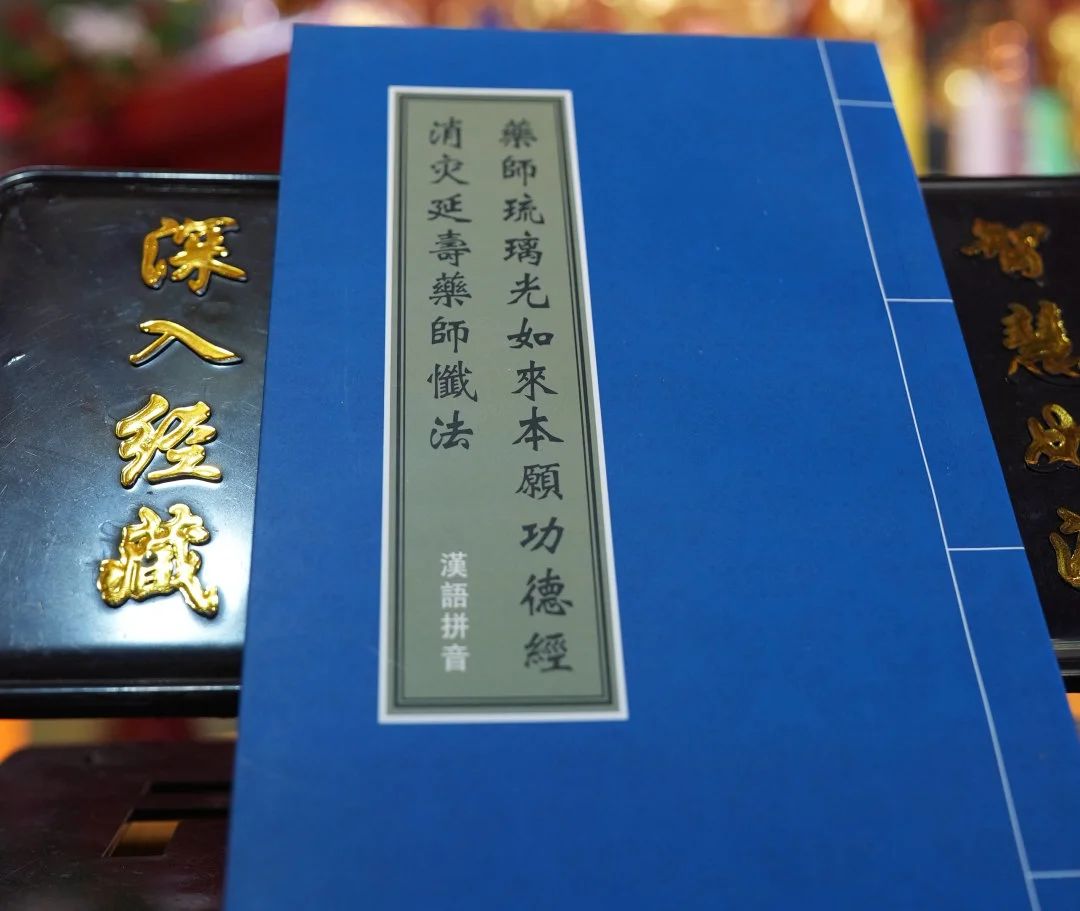 藥師琉璃光如來本願功德經
消灾延壽藥師懺法
漢語拼音
深入經藏
智慧如海